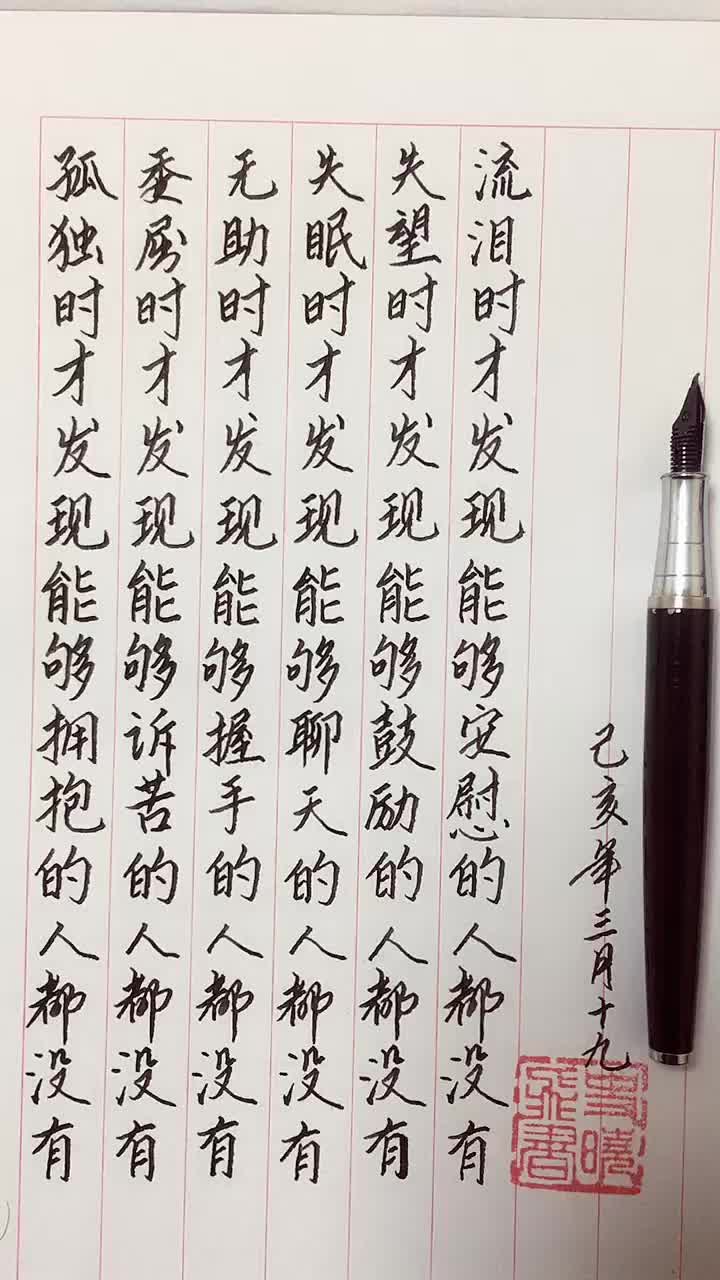 孤独时才发现能够拥抱的人都没有
委屈时才发现能够诉苦的人都没有
无助时才发现能够握手的人都没有
失眠时才发现能够聊天的人都没有
失望时才发现能够鼓励的人都没有
流泪时才发现能够安慰的人都没有
己亥年三月十九